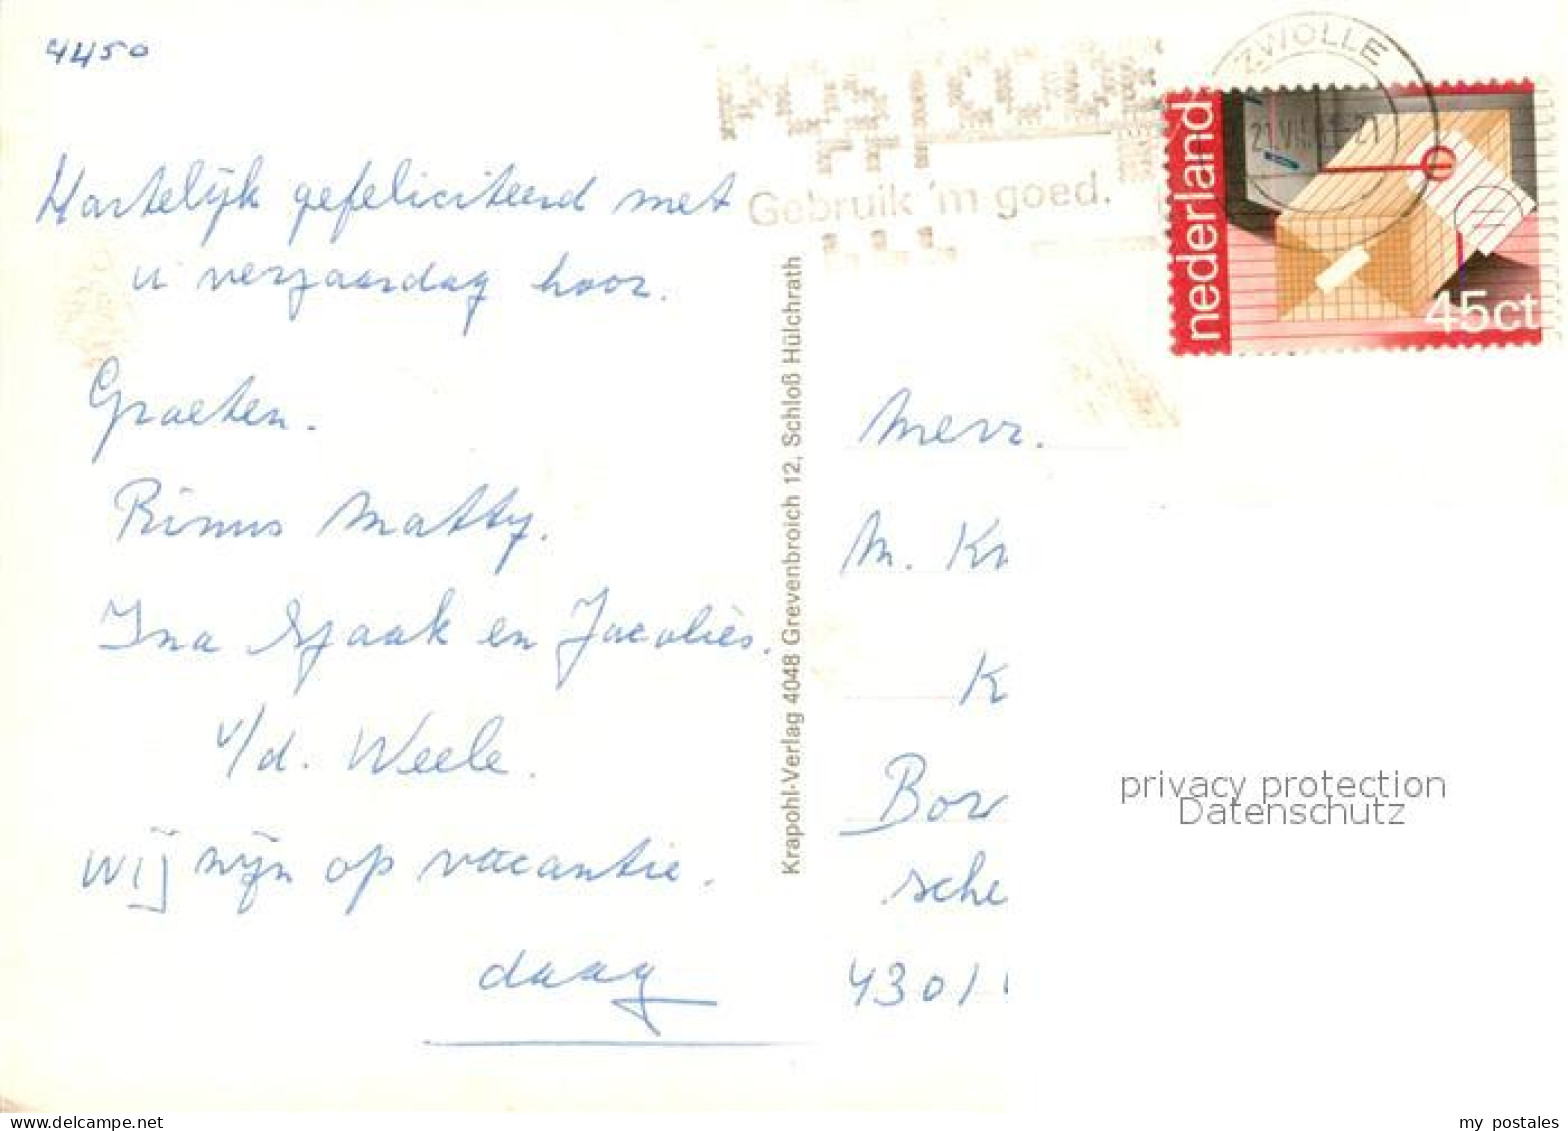 4450
Hartelijk gefeliciteerd met
u verjaardag hoor.
Groeten.
Rinus Matty.
Ina Sjaak en Jacolies.
v/d. Weele.
wij zijn op vacantie.
daag
Krapohl-Verlag 4048 Grevenbroich 12, Schloß Hülchrath
Gebruik 'm goed.
ZWOLLE
nederland
45ct
Mevr.
M. Kr
K
Bor
sche
4301
privacy protection
Datenschutz
www.delcampe.net
my_postales